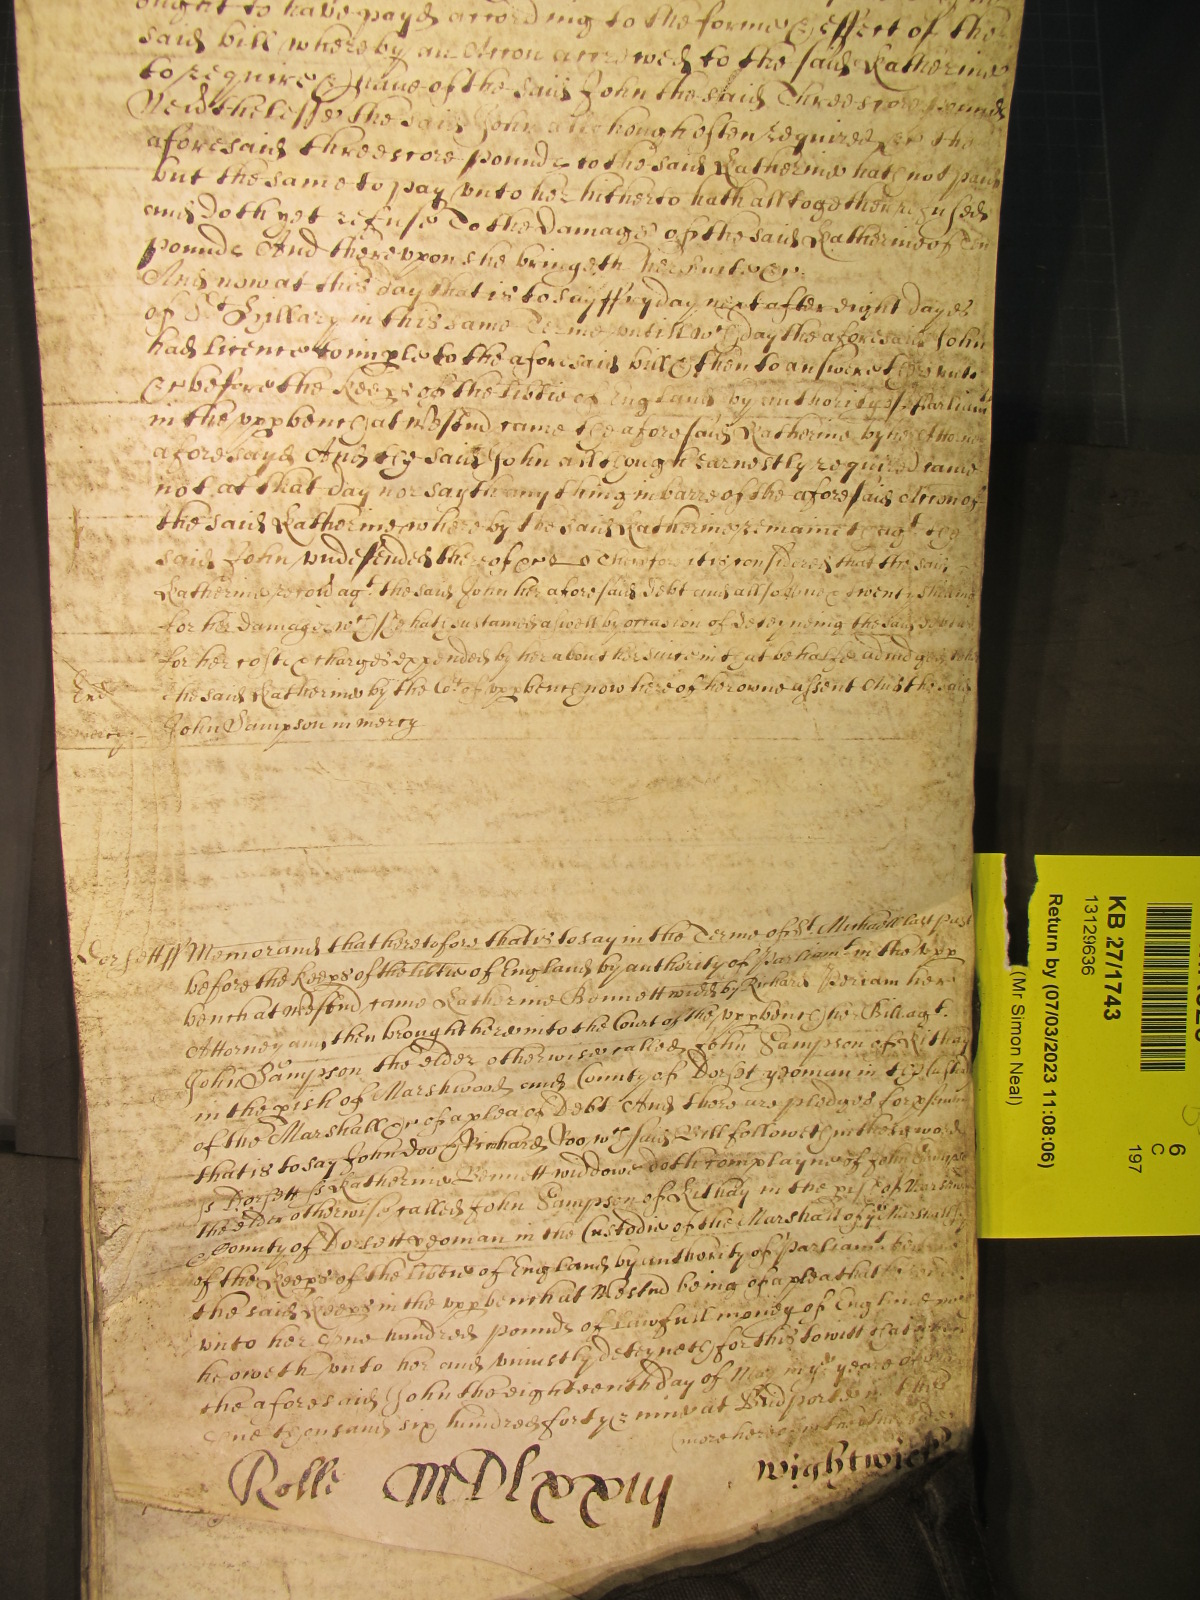 ought to have payd according to the forme & effect of the
said bill whereby an Accon accrewed to the said Katherine
to require & have of the said John the said Threescore pounds
Nevertheless the said John although often required &c the
aforesaid threescore pounds to the said Katherine hath not paid
but the same to pay unto her hitherto hath alltogether refused
and doth yet refuse To the damage of the said Katherine of Ten
pounds And thereuppon she bringeth her suite &c.
And now at this day that is to say ffryday next after eight dayes
of St Hillary in this same Terme untill wch day the aforesaid John
had licence to imple to the aforesaid bill & then to answere the
&c before the Keeps of the libtie of England by authority of Parliamt
in the uppbench at Westmd came the aforesaid Katherine by her Attorney
aforesayd And the said John although earnestly required came
not at that day nor sayth any thing in barre of the aforesaid Accon of
the said Katherine whereby the said Katherine remaineth agt the
said John undefended thereof &c Therefore it is considered that the said
Katherine recovd agt the said John her aforesaid debt and allsoe one & twenty shillings
for her damages wch she hath sustained aswell by occasion of deteyneing the said debt as
for her costs & charges expended by her about her suite in that behalfe adiudged to
the said Katherine by the Cot of uppbench now here of her owne assent And the said
John Sampson in mercy
mercy
Dorsett ss Memorand that heretofore that is to say in the Terme of St Michaell last past
before the Keeps of the libtie of England by authority of Parliamt in the upp
bench at Westmd came Katherine Bonnett widd by Richard Periam her
Attorney and then brought here into the Court of the uppbench her Bill agt.
John Sampson the elder otherwise called John Sampson of Kithay
in the pish of Marshwood and County of Dorset yeoman in the custody
of the Marshall &c of a plea of Debt And there are pledges for psecuting
that is to say John Doo & Richard Roo wch said Bill followeth in these words
ss Dorsett ss Katherine Bonnett widdowe doth complayne of John Sampson
the elder otherwise called John Sampson of Kithay in the pish of Marshwood
County of Dorsett yeoman in the Custodie of the Marshall of ye Marshallsey
of the Keeps of the libtie of England by authority of Parliamt before
the said Keeps in the uppbench at Westmd being of a plea that
unto her One hundred pounds of lawfull money of England wch
he oweth unto her and uniustly deteyneth for this to witt that whereas
the aforesaid John the eighteenth day of May in ye yeare of
One thousand six hundred forty & nine at Bridport in the
Rolle MDlxxiij Wightwick
KB 27/1743
13129636
Return by (07/03/2023 11:08:06)
(Mr Simon Neal)
6
C
197